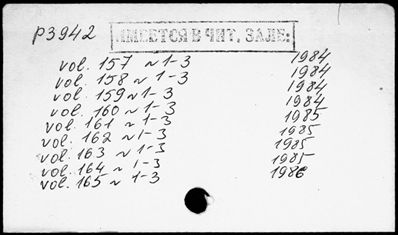 p3942 ИМЕЕТСЯ В ЧИТ. ЗАЛЕ:
vol. 157 ~ 1-3 1984
vol. 158 ~ 1-3 1984
vol. 159 ~ 1-3 1984
vol. 160 ~ 1-3 1984
vol. 161 ~ 1-3 1985
vol. 162 ~ 1-3 1985
vol. 163 ~ 1-3 1985
vol. 164 ~ 1-3 1985
vol. 165 ~ 1-3 1986